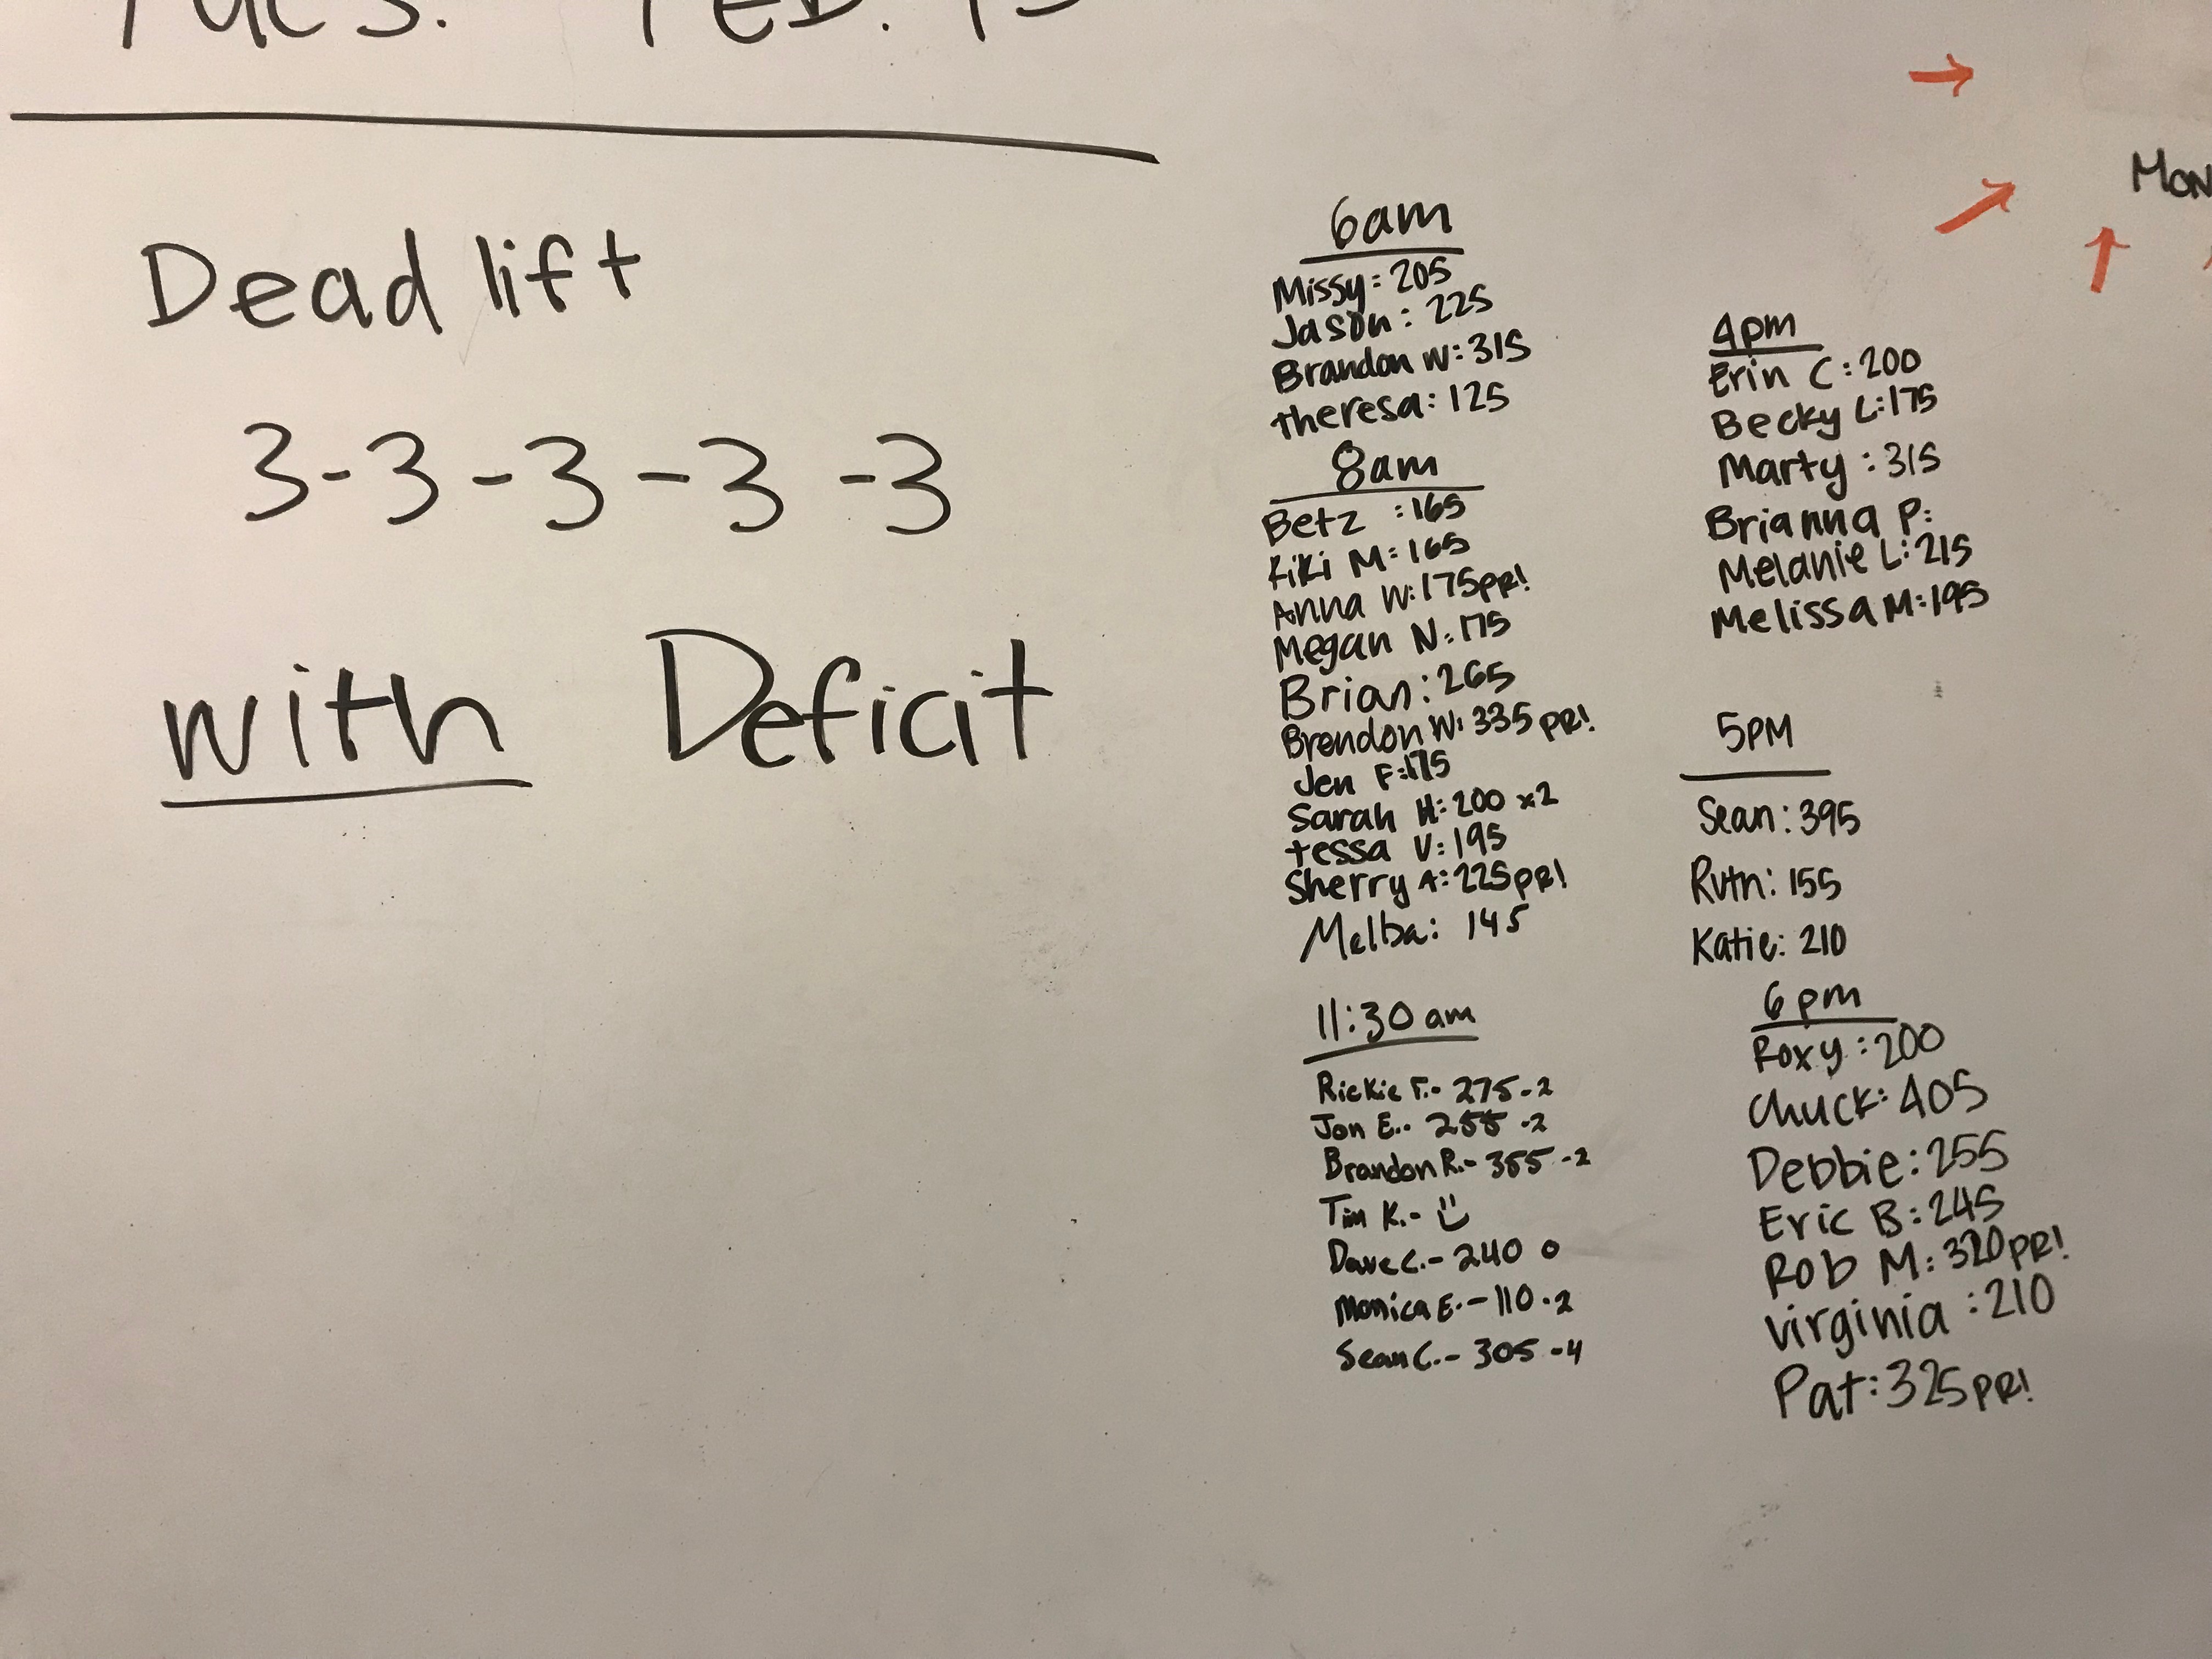 Tues. Feb. 13
Deadlift
3-3-3-3-3
with Deficit
6am
Missy: 205
Jason: 225
Brandon W: 315
theresa: 125
8am
Betz : 165
Kiki M: 165
Anna W: 175 PR!
Megan N: 175
Brian: 265
Brendon W: 335 PR!
Jen F: 175
Sarah H: 200 x2
tessa V: 195
Sherry A: 225 PR!
Melba: 145
11:30 am
Rickie F.- 275-2
Jon E.- 255 -2
Brandon R.- 355 -2
Tim K.-
Dave C.- 240 0
Monica E.- 110 -2
Sean C.- 305 -4
4pm
Erin C: 200
Becky L: 175
Marty : 315
Brianna P:
Melanie L: 215
Melissa M: 195
5PM
Sean: 395
Ruth: 155
Katie: 210
6pm
Roxy: 200
Chuck: 405
Debbie: 255
Eric B: 245
Rob M: 320 PR!
Virginia : 210
Pat: 325 PR!
Mon